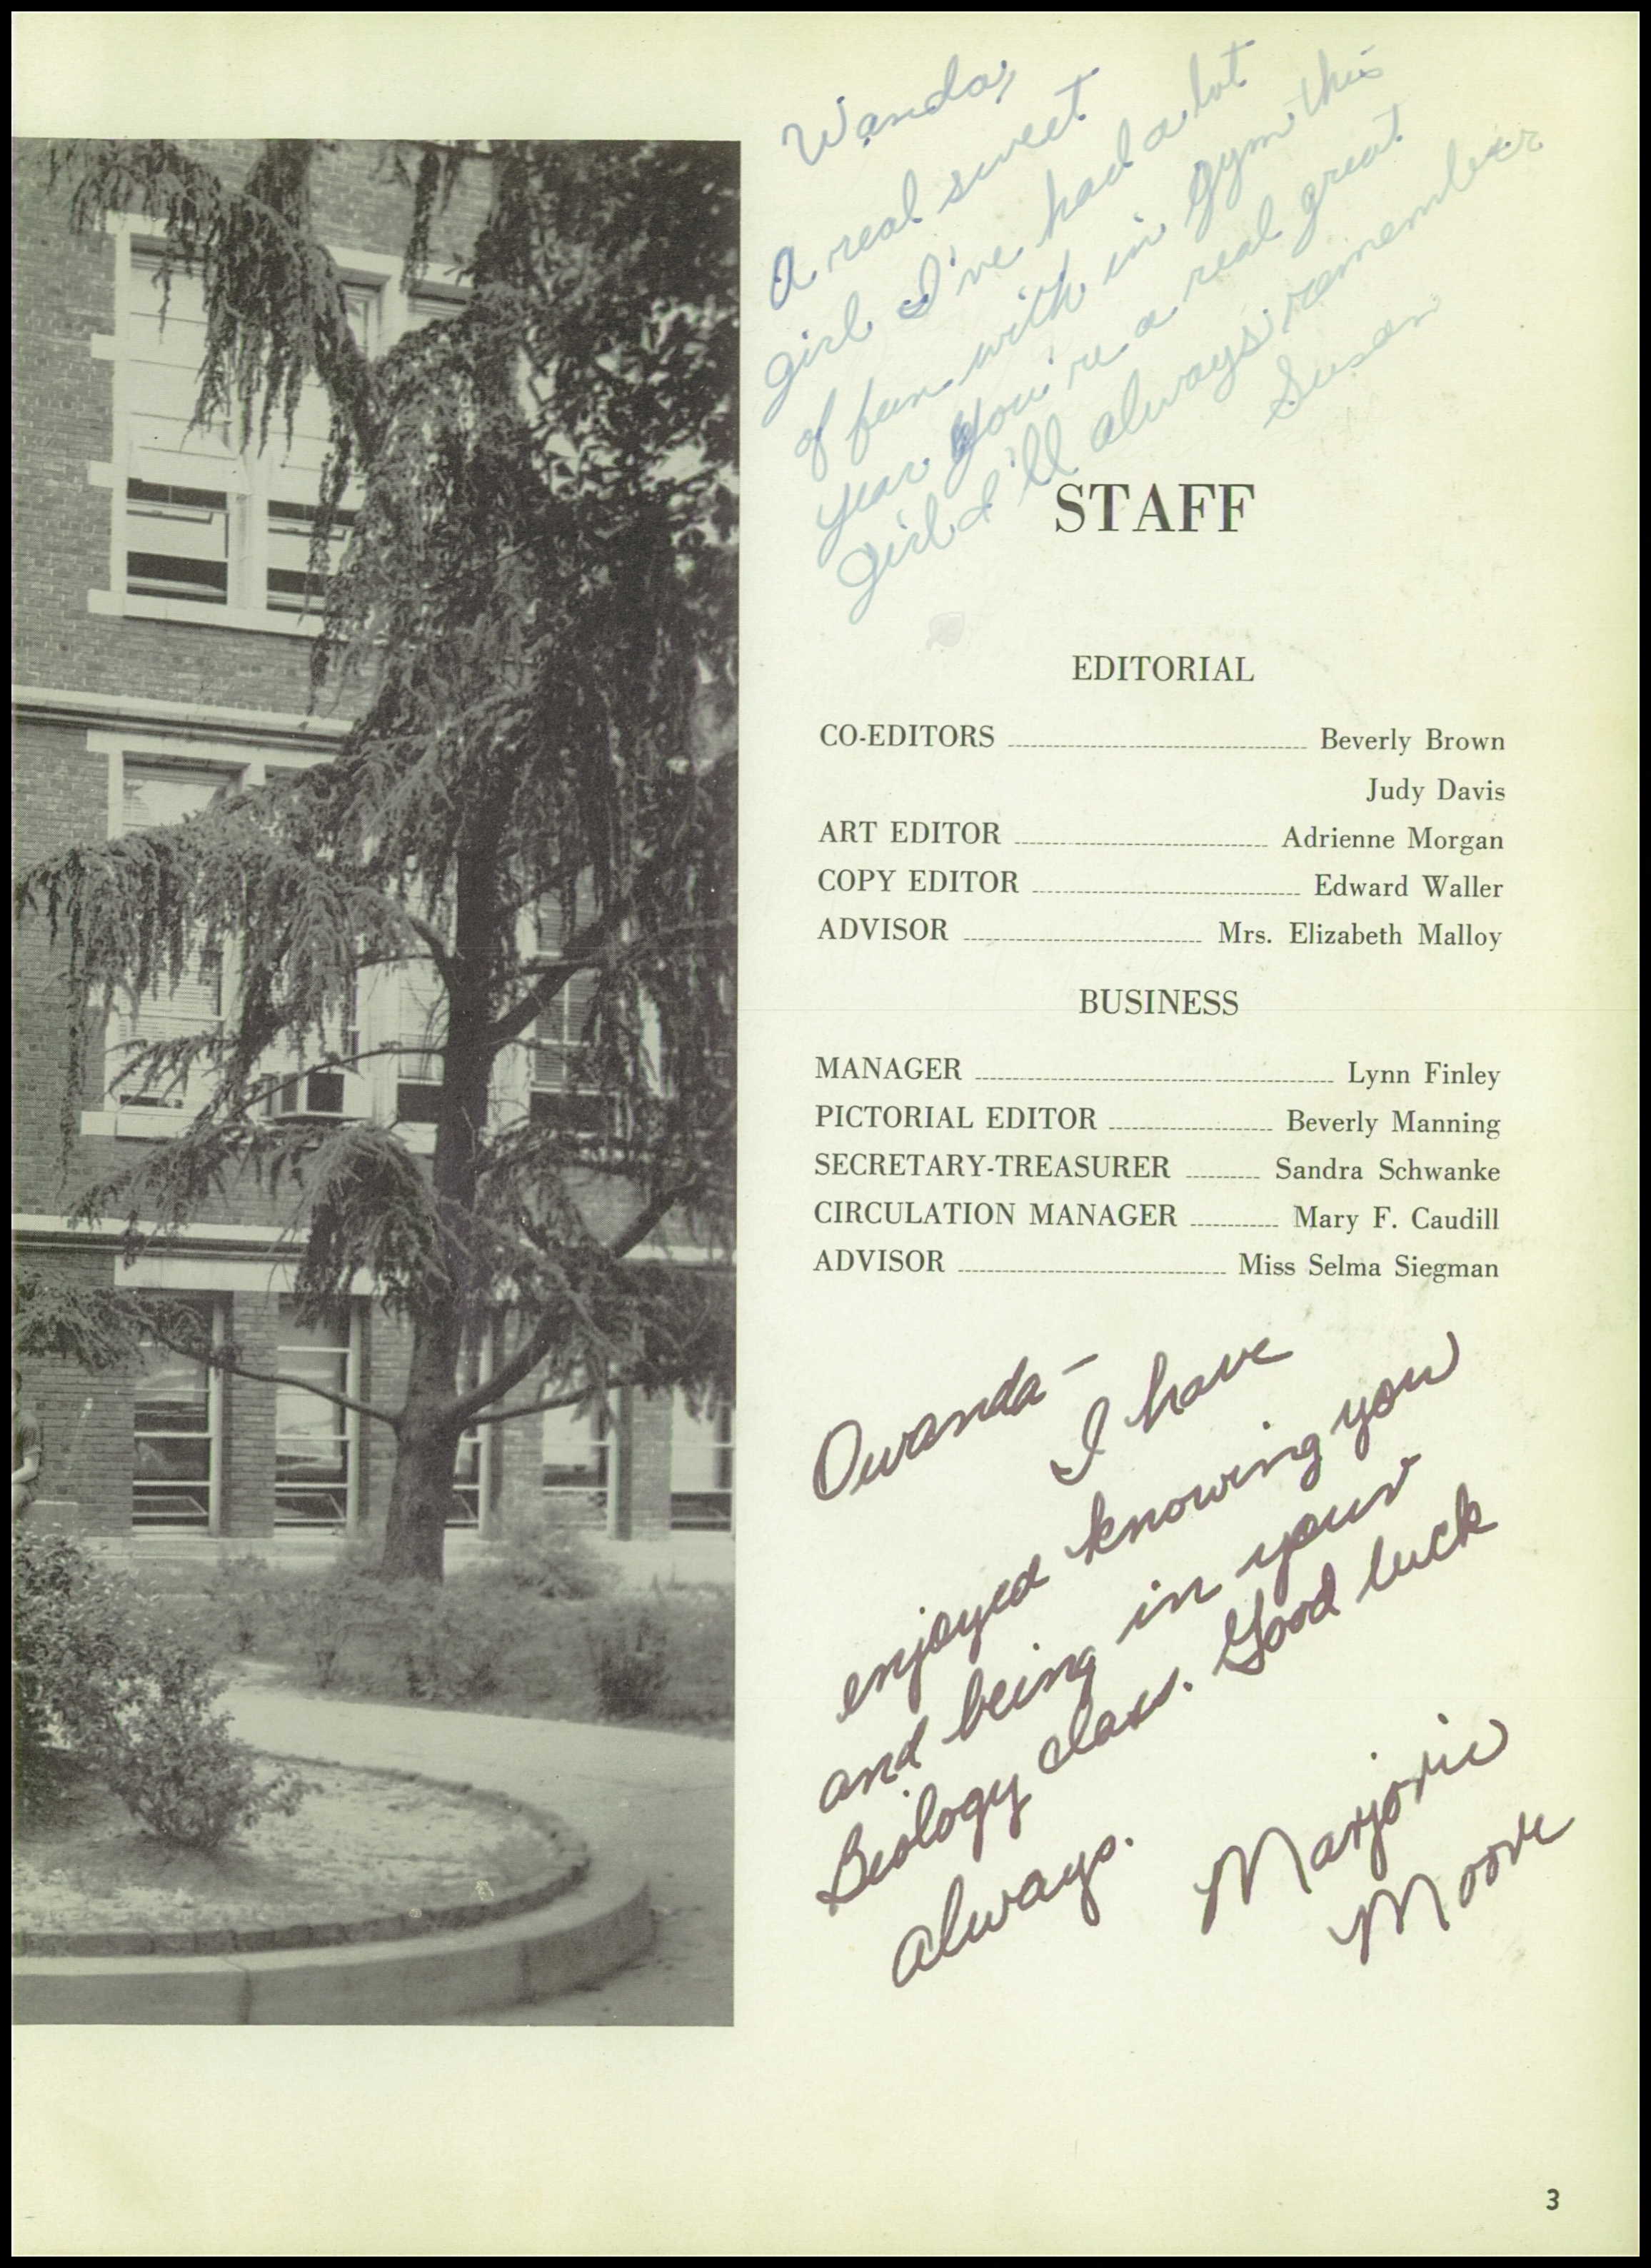 Wanda,
A real sweet
girl I've had a lot
of fun with in Gym this
year you're a real great
girl I'll always remember
Susan
STAFF
EDITORIAL
CO-EDITORS Beverly Brown
Judy Davis
ART EDITOR Adrienne Morgan
COPY EDITOR Edward Waller
ADVISOR Mrs. Elizabeth Malloy
BUSINESS
MANAGER Lynn Finley
PICTORIAL EDITOR Beverly Manning
SECRETARY-TREASURER Sandra Schwanke
CIRCULATION MANAGER Mary F. Caudill
ADVISOR Miss Selma Siegman
Owanda -
I have
enjoyed knowing you
and being in your
Biology class. Good luck
always.
Marjorie
Moore
3